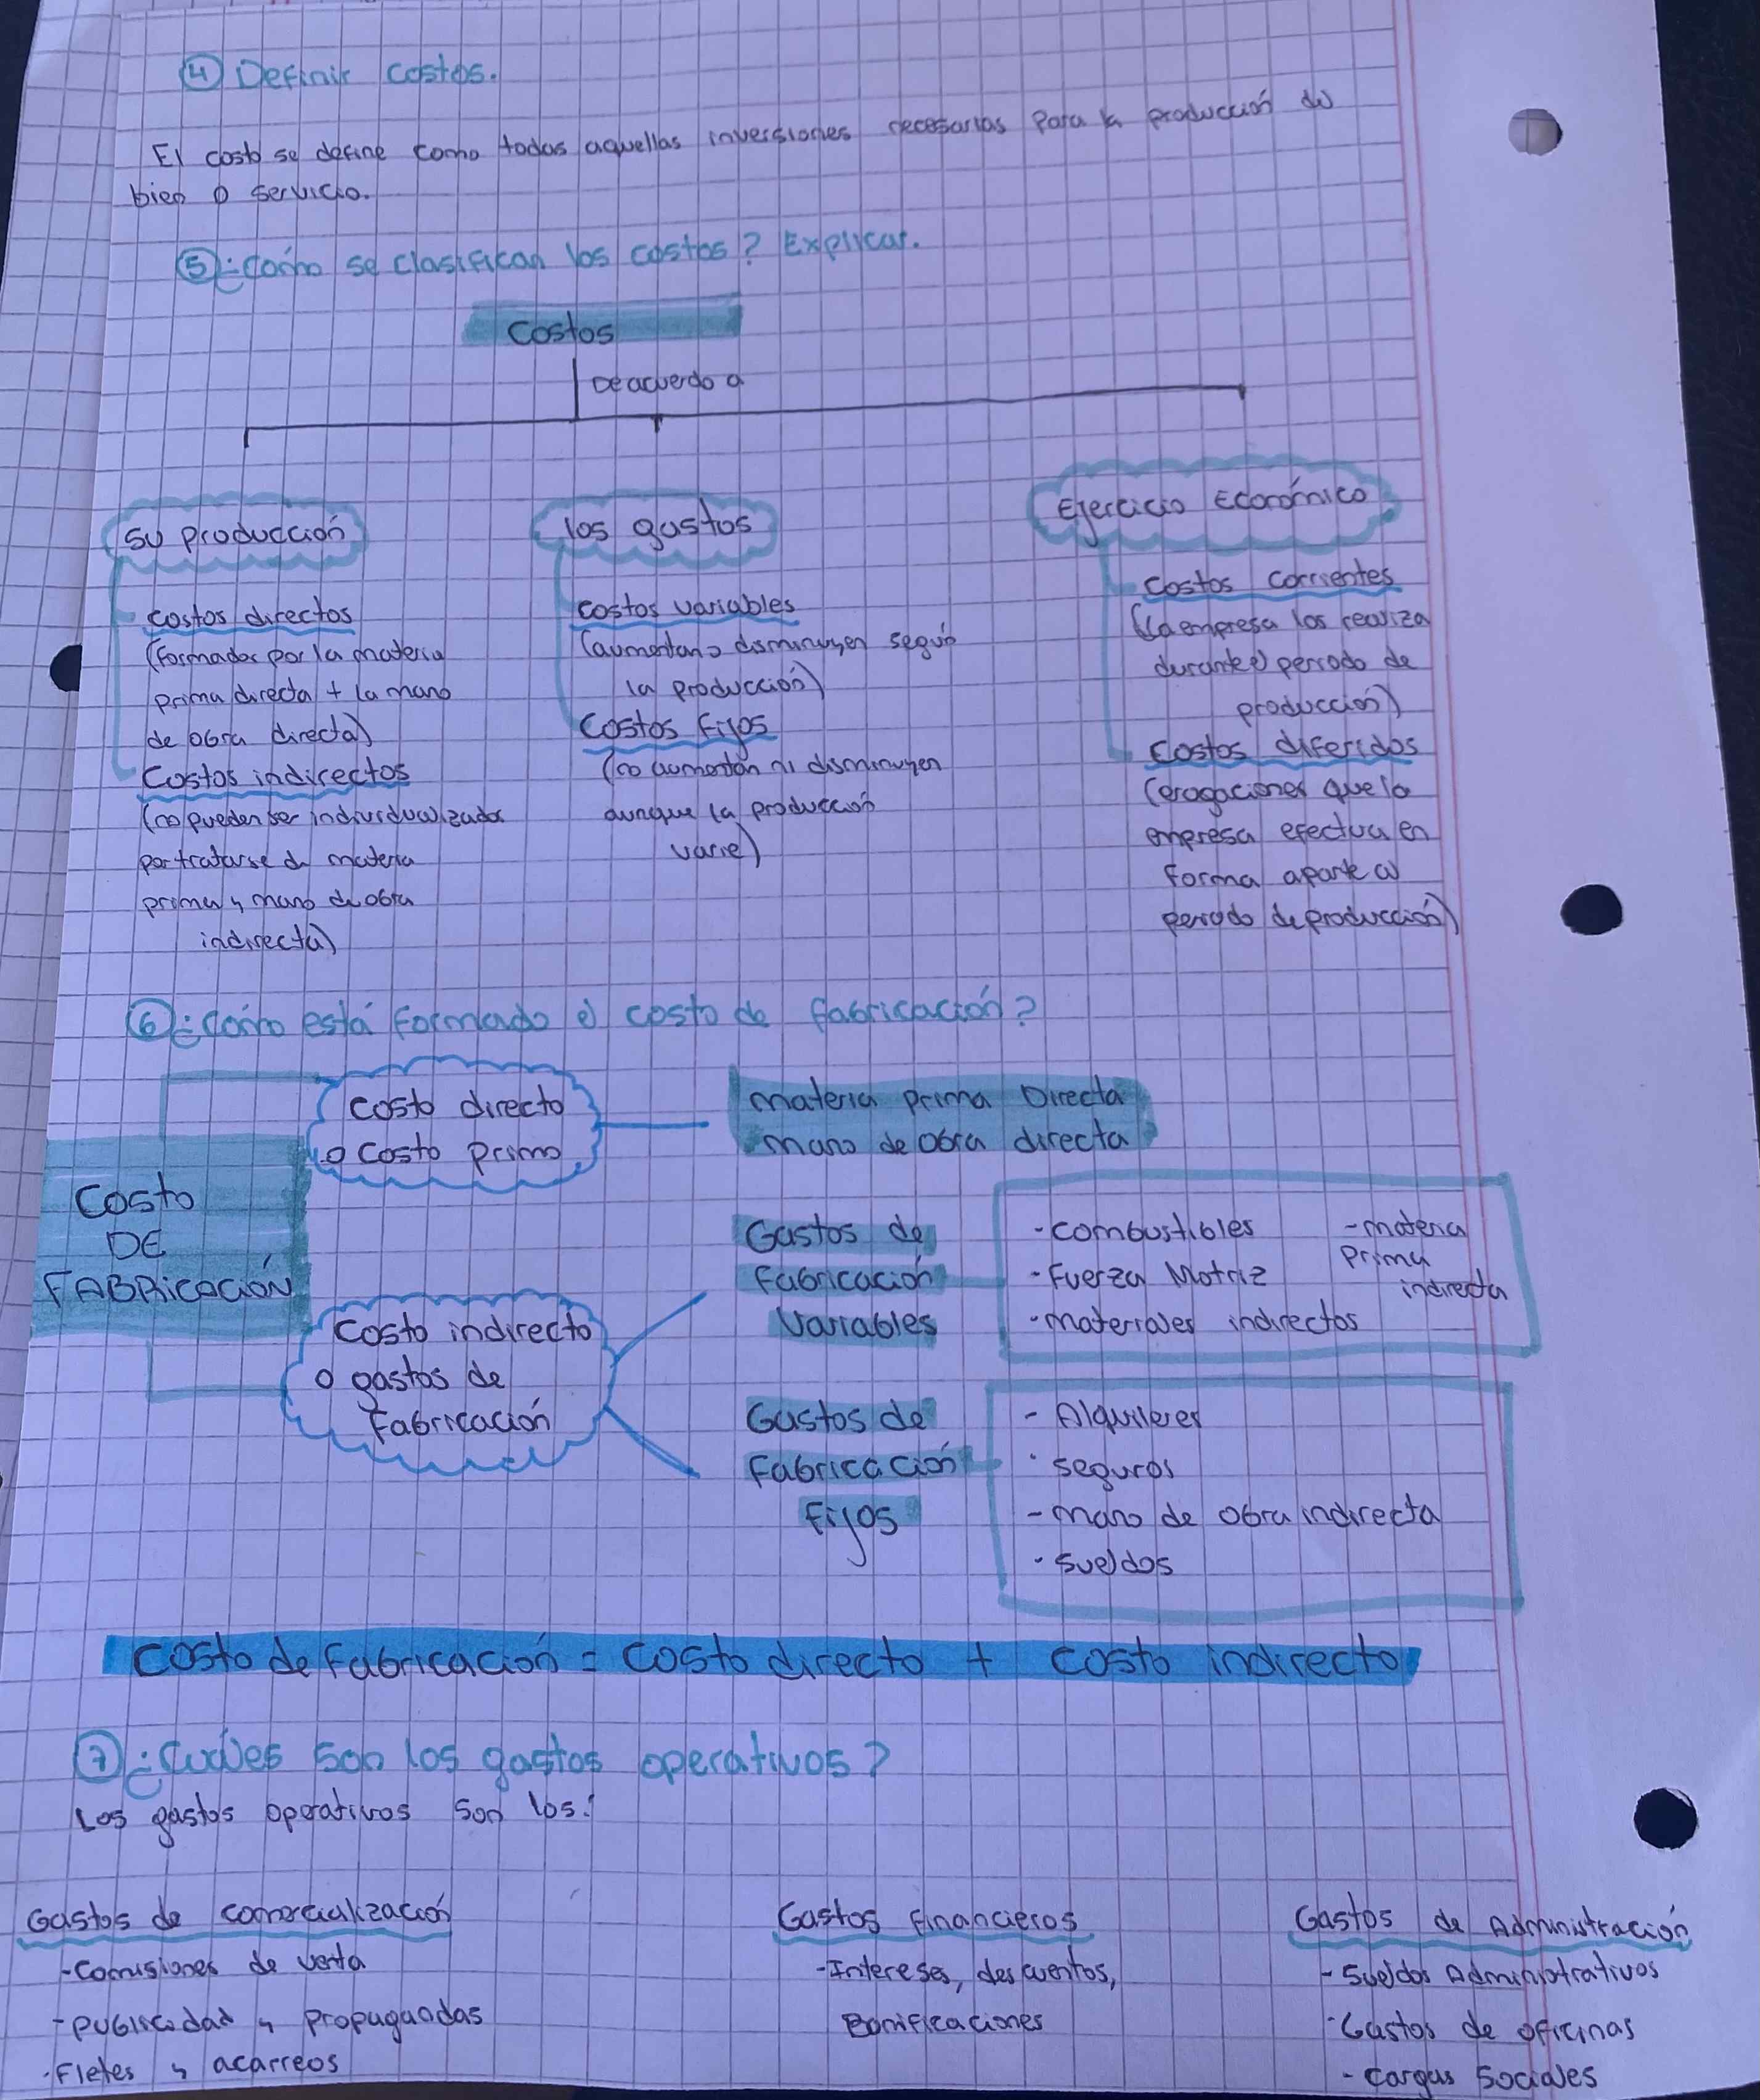 ④ Definir costos.
El costo se define como todas aquellas inversiones necesarias para la producción del
bien o servicio.
⑤ ¿Cómo se clasifican los costos? Explicar.
Costos
De acuerdo a
Su producción
Costos directos
(formados por la materia
prima directa + la mano
de obra directa)
Costos indirectos
(no pueden ser individualizados
por tratarse de materia
prima y mano de obra
indirecta)
los gastos
Costos variables
(aumentan o disminuyen según
la producción)
Costos Fijos
(no aumentan ni disminuyen
aunque la producción
varie)
Ejercicio Económico
Costos corrientes
(La empresa los realiza
durante el periodo de
producción)
Costos diferidos
(erogaciones que la
empresa efectua en
forma aparte al
periodo de producción)
⑥ ¿Cómo está formado el costo de fabricación?
COSTO
DE
FABRICACIÓN
Costo directo
o costo primo
Materia prima Directa
mano de obra directa
Costo indirecto
o gastos de
Fabricación
Gastos de
Fabricación
Variables
- Combustibles
- Fuerza Motriz
- Materiales indirectos
- materia
prima
indirecta
Gastos de
Fabricación
Fijos
- Alquileres
- seguros
- mano de obra indirecta
- sueldos
Costo de Fabricación = Costo directo + Costo indirecto
⑦ ¿Cuáles son los gastos operativos?
Los gastos operativos son los:
Gastos de comercialización
- Comisiones de venta
- Publicidad y propagandas
- Fletes y acarreos
Gastos financieros
- Intereses, descuentos,
Bonificaciones
Gastos de Administración
- Sueldos Administrativos
- Gastos de oficinas
- Cargas Sociales